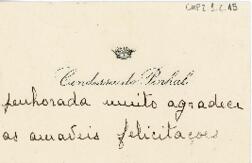 CMP2.1.2.13
Condessa do Pinhal
penhorada muito agradece
as amaveis felicitações